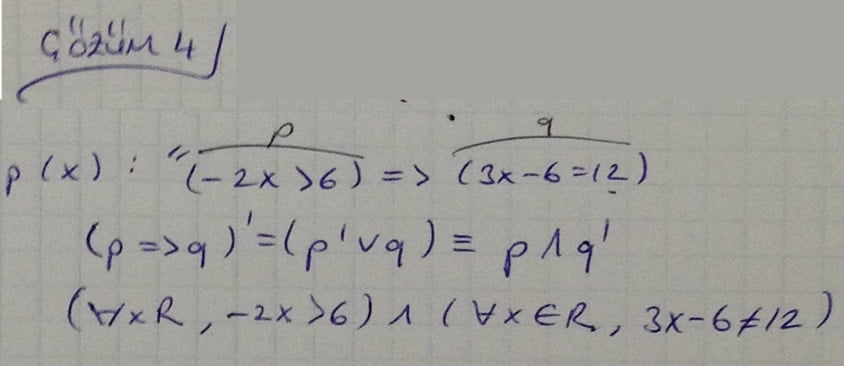 ÇÖZÜM 4
p q
p(x) : "(-2x >6) => (3x-6=12)
(p=>q)'=(p'vq) ≡ p∧q'
(∀xR, -2x>6) ∧ (∀x∈R, 3x-6≠12)